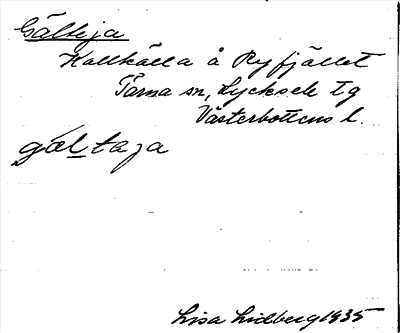 Gälteja
Kallkälla å Ryfjället
Tärna sn, Lycksele tg
Västerbottens l.
gältaja
Lisa Lidberg 1935